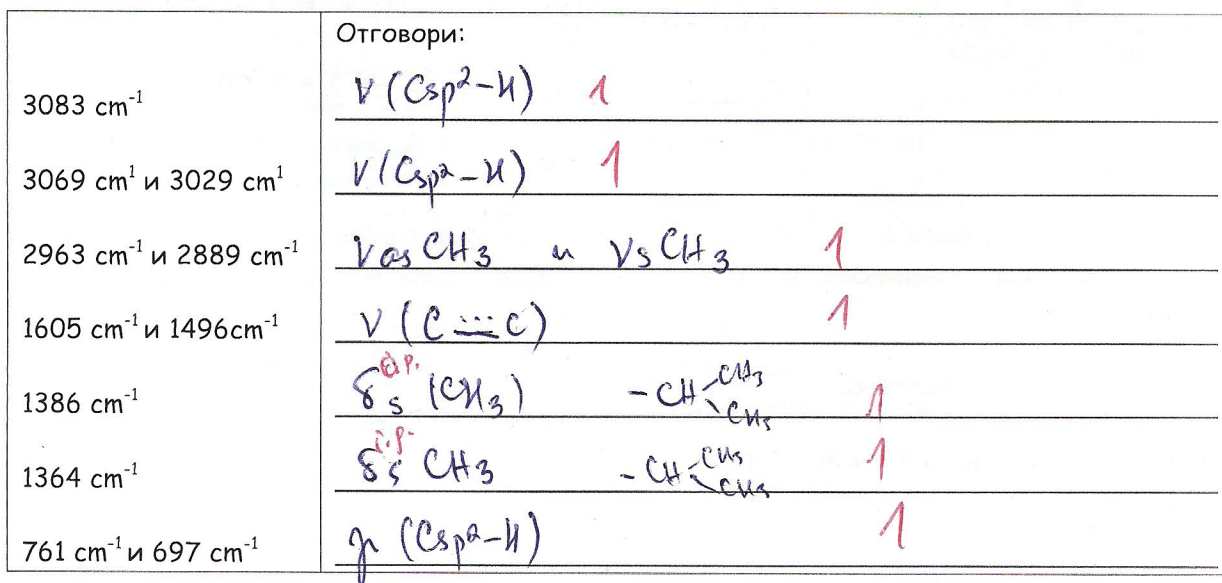 Отговори:
3083 cm⁻¹ ν (Csp²–H) 1
3069 cm¹ и 3029 cm¹ ν (Csp²–H) 1
2963 cm⁻¹ и 2889 cm⁻¹ νas CH3 и νs CH3 1
1605 cm⁻¹ и 1496cm⁻¹ ν (C ⩧ C) 1
1386 cm⁻¹ δs (CH3) –CH CH3 CH3 1
1364 cm⁻¹ i.p. δs CH3 –CH CH3 CH3 1
761 cm⁻¹ и 697 cm⁻¹ γ (Csp²–H) 1